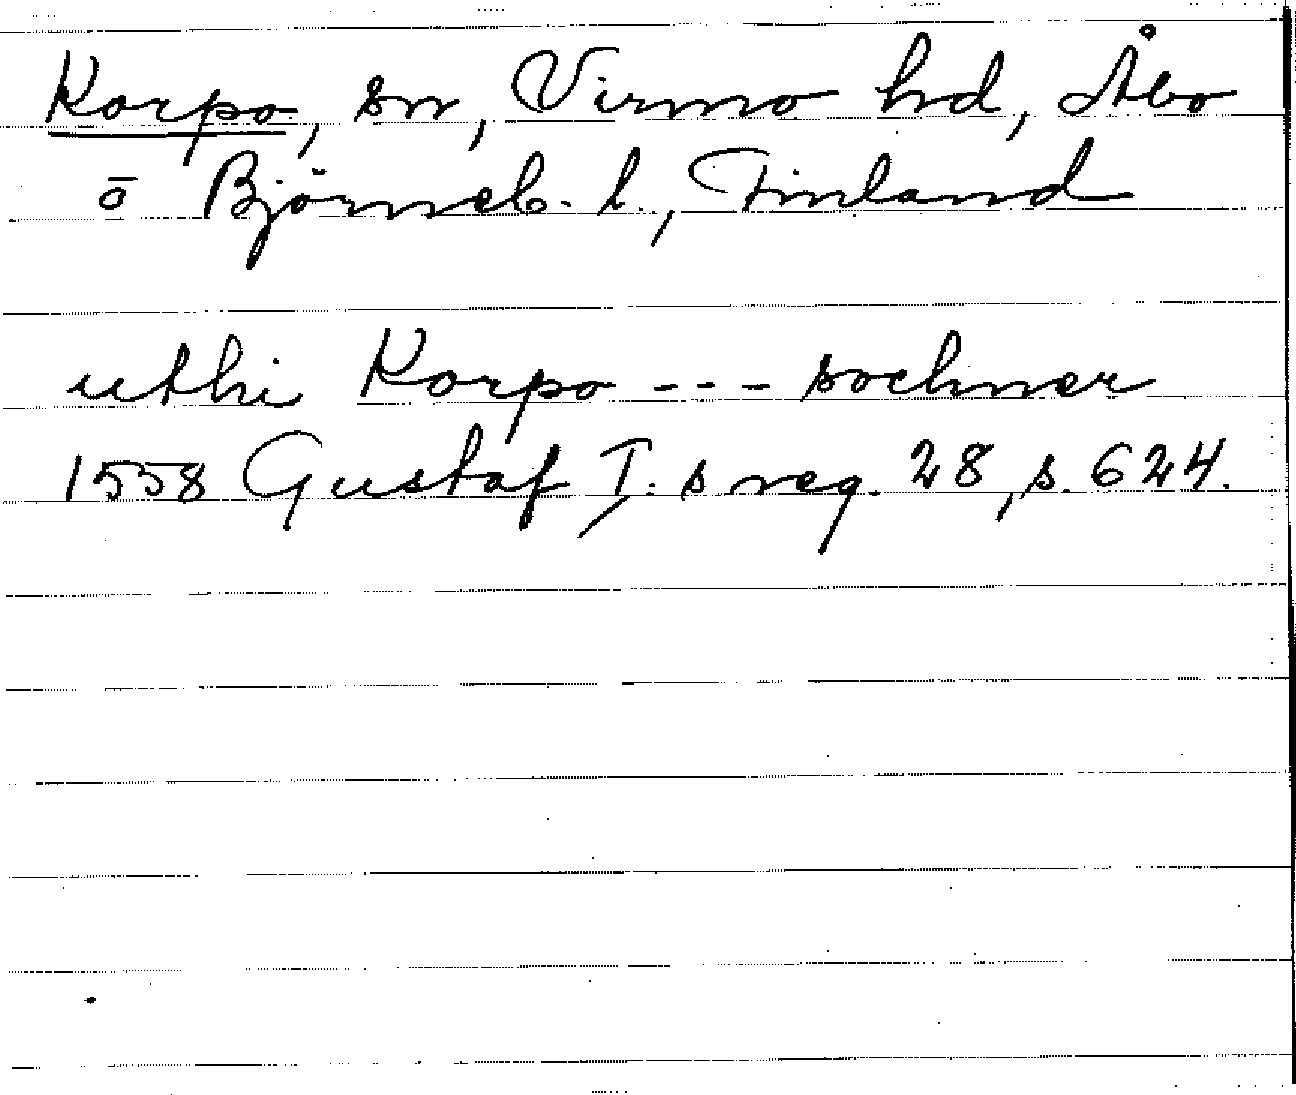 Korpo, sn, Virmo hd, Åbo
o Björneb. l., Finland
uthi Korpo --- sochner
1558 Gustaf I:s reg. 28, s. 624.